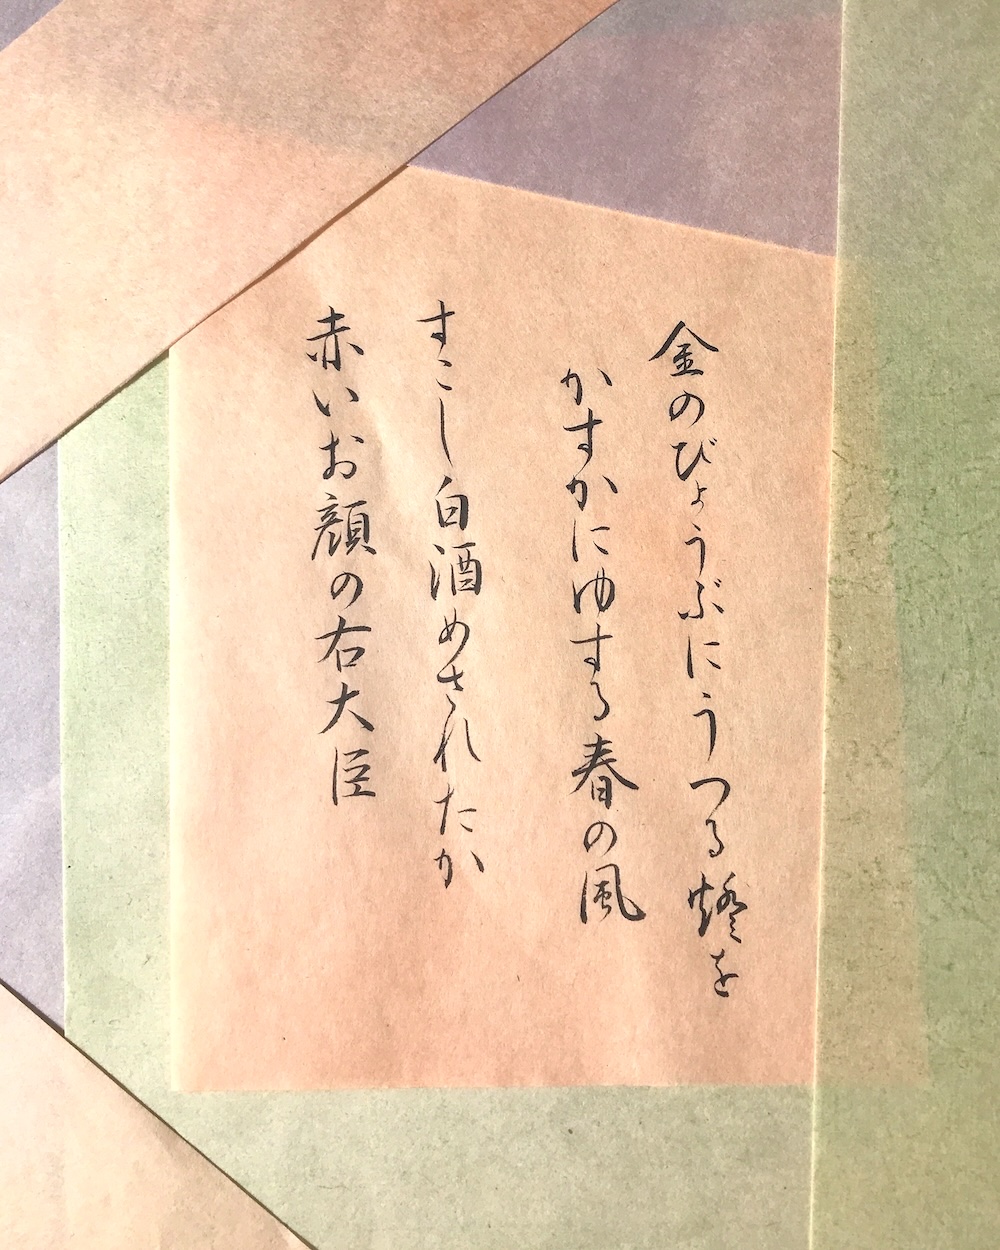 金のびょうぶにうつる燈を
かすかにゆする春の風
すこし白酒めされたか
赤いお顔の右大臣